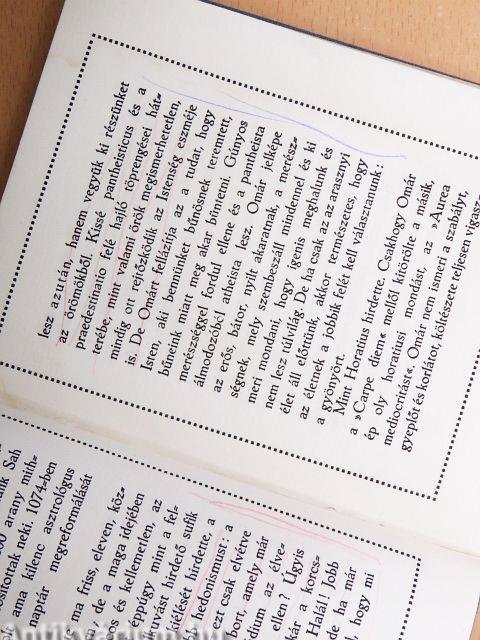 lesz azután, hanem vegyük ki részünket
az örömökből. Kissé pantheisticus és a
praedestinatio felé hajló töprengései hát-
terébe, mint valami örök megismerhetetlen,
mindig ott rejtőzködik az Istenség eszméje
is. De Omárt fellázítja az a tudat, hogy
Isten, aki bennünket bűnösnek teremtett,
bűneink miatt meg akar büntetni. Gúnyos
merészséggel fordul ellene és a pantheista
álmodozóból atheista lesz. Omár jelképe
az erős, bátor, nyílt akaratnak, a merész-
ségnek, mely szembeszáll mindennel és ki
meri mondani, hogy igenis meghalunk és
nem lesz túlvilág. De ha csak az az arasznyi
élet áll előttünk, akkor természetes, hogy
az életnek a jobbik felét kell választanunk:
a gyönyört.
Mint Horatius hirdette. Csakhogy Omár
a »Carpe diem« mellől kitörölte a másik,
ép oly horatiusi mondást, az »Aurea
mediocritást«. Omár nem ismeri a szabályt,
gyeplőt és korlátot, költészete teljesen
Sah
arany mith-
neki. 1074-ben
ama kilenc asztrológus
naptár megreformálását
ma friss, eleven, köz-
de a maga idejében
os és kellemetlen, az
éppúgy mint a fel-
hirdető sufik
hirdette, a
hedonismust: a
ezt csak elvétve
bort, amely már
az élve-
ellen? Úgyis
már a korcs-
Halál! Jobb
de ha már
hogy mi
Antikvarium.hu